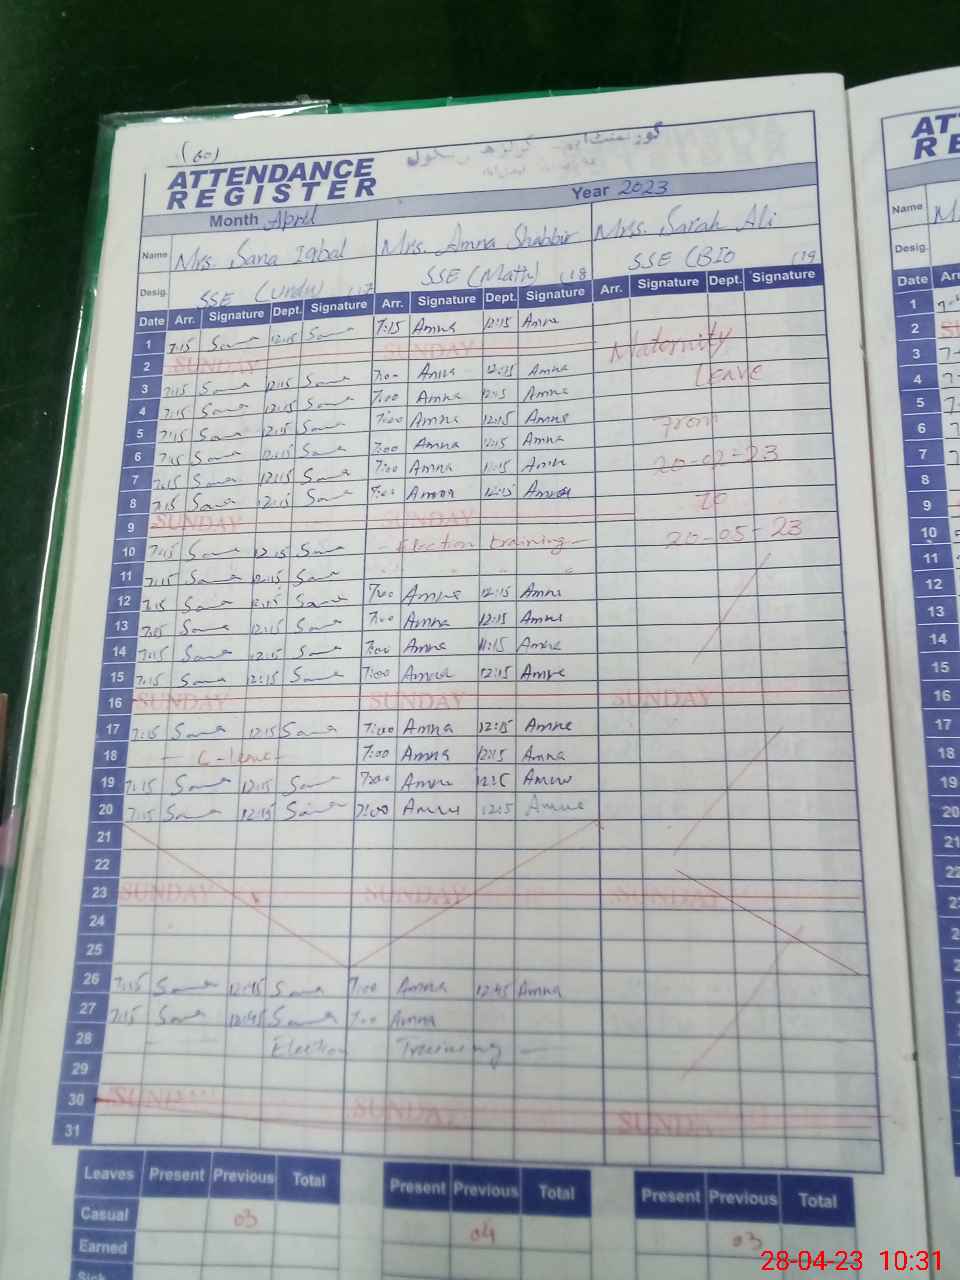 (60)
ATTENDANCE
REGISTER
Month April
Year 2023
Name Mrs. Sana Iqbal Mrs. Amna Shabbir Mrs. Sarah Ali
Desig. SSE (Urdu) (17 SSE (Math) (18 SSE (BIO (19
Date Arr. Signature Dept. Signature Arr. Signature Dept. Signature Arr. Signature Dept. Signature
1 7:15 Sana 12:15 Sana 7:15 Amna 12:15 Amna
2 SUNDAY SUNDAY Maternity
3 7:15 Sana 12:15 Sana 7:00 Amna 12:15 Amna Leave
4 7:15 Sana 12:15 Sana 7:00 Amna 12:15 Amna
5 7:15 Sana 12:15 Sana 7:00 Amna 12:15 Amna from
6 7:15 Sana 12:15 Sana 7:00 Amna 12:15 Amna
7 7:15 Sana 12:15 Sana 7:00 Amna 11:15 Amna 20-02-23
8 7:15 Sana 12:15 Sana 7:00 Amna 12:15 Amna to
9 SUNDAY SUNDAY
10 7:15 Sana 12:15 Sana - Election training - 20-05-23
11 7:15 Sana 12:15 Sana
12 7:15 Sana 12:15 Sana 7:00 Amna 12:15 Amna
13 7:15 Sana 12:15 Sana 7:00 Amna 12:15 Amna
14 7:15 Sana 12:15 Sana 7:00 Amna 11:15 Amna
15 7:15 Sana 12:15 Sana 7:00 Amna 12:15 Amna
16 SUNDAY SUNDAY SUNDAY
17 7:15 Sana 12:15 Sana 7:00 Amna 12:15 Amna
18 - C-leave - 7:00 Amna 12:15 Amna
19 7:15 Sana 12:15 Sana 7:00 Amna 12:15 Amna
20 7:15 Sana 12:15 Sana 7:00 Amna 12:15 Amna
21
22
23 SUNDAY SUNDAY SUNDAY
24
25
26 7:15 Sana 12:45 Sana 7:00 Amna 12:45 Amna
27 7:15 Sana 12:45 Sana 7:00 Amna
28 Election Training
29
30 SUNDAY SUNDAY SUNDAY
31
Leaves Present Previous Total Present Previous Total Present Previous Total
Casual 03 04 03
Earned
Sick
Name
Desig.
Date
1
2
3
4
5
6
7
8
9
10
11
12
13
14
15
16
17
18
19
20
21
28-04-23 10:31